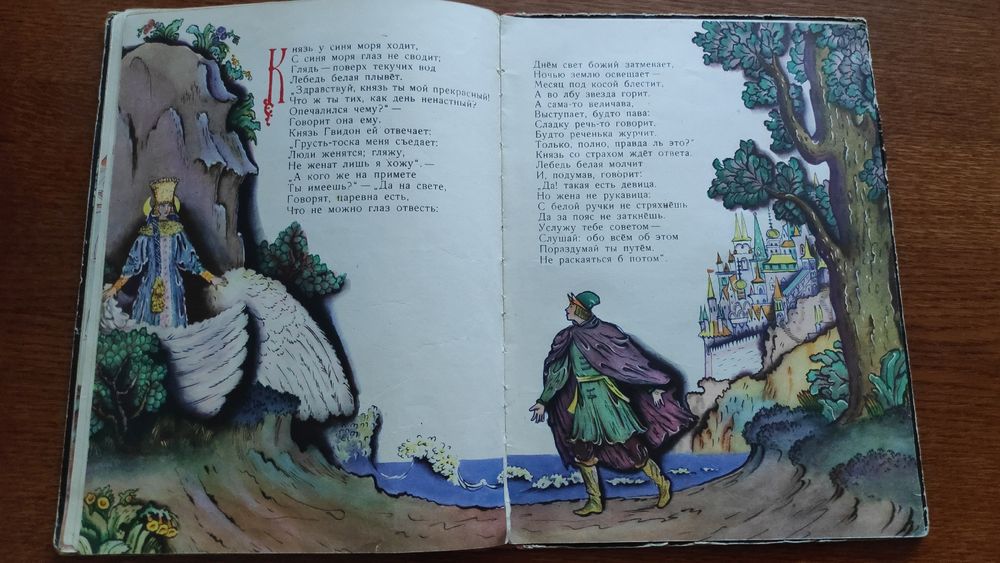 Князь у синя моря ходит,
С синя моря глаз не сводит;
Глядь — поверх текучих вод
Лебедь белая плывёт.
„Здравствуй, князь ты мой прекрасный!
Что ж ты тих, как день ненастный?
Опечалился чему?“ —
Говорит она ему.
Князь Гвидон ей отвечает:
„Грусть-тоска меня съедает:
Люди женятся; гляжу,
Не женат лишь я хожу“. —
„А кого же на примете
Ты имеешь?“ — „Да на свете,
Говорят, царевна есть,
Что не можно глаз отвесть:
Днём свет божий затмевает,
Ночью землю освещает —
Месяц под косой блестит,
А во лбу звезда горит.
А сама-то величава,
Выступает, будто пава:
Сладку речь-то говорит,
Будто реченька журчит.
Только, полно, правда ль это?“
Князь со страхом ждёт ответа.
Лебедь белая молчит
И, подумав, говорит:
„Да! такая есть девица.
Но жена не рукавица:
С белой ручки не стряхнёшь
Да за пояс не заткнёшь.
Услужу тебе советом —
Слушай: обо всём об этом
Пораздумай ты путём,
Не раскаяться б потом“.